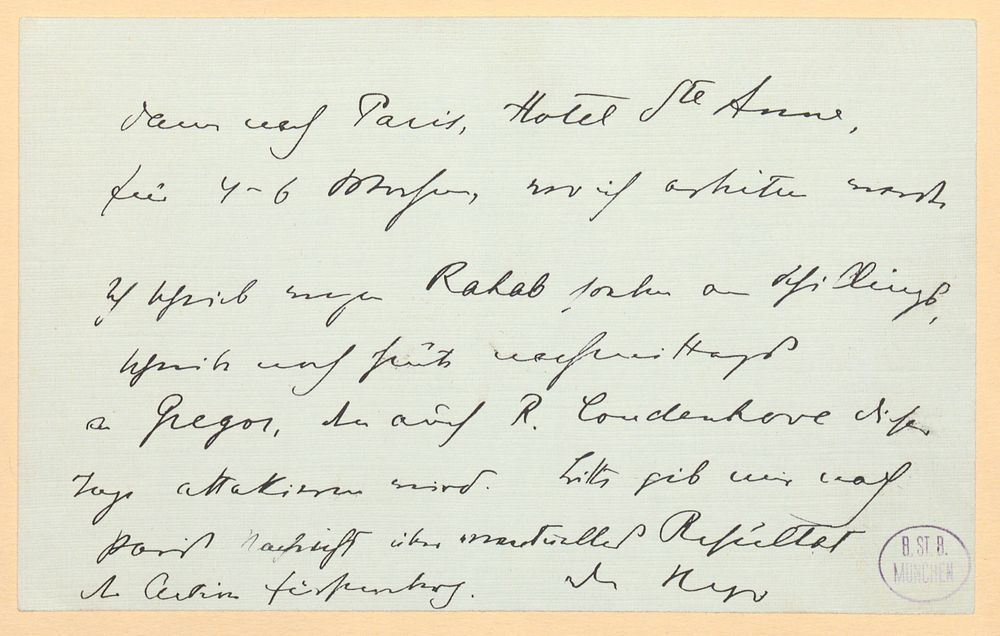 dann nach Paris, Hotel Ste Anne,
für 4-6 Wochen, wo ich arbeiten werde
Ich schrieb wegen Rahab soeben an Schillings,
schreibe noch heute nachmittags
an Gregor, den auch R. Coudenhove dieser
Tage attakieren wird. Bitte gib mir nach
Paris Nachricht über eventuelles Resultat
der Action Fürstenberg. Dein Hugo
B. ST. B.
MÜNCHEN